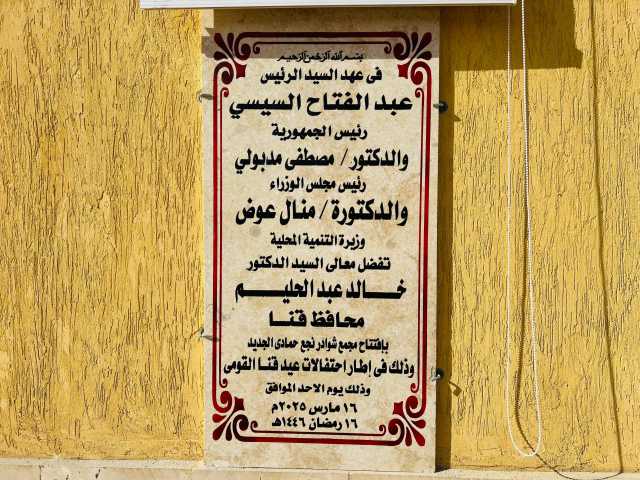 بسم الله الرحمن الرحيم
فى عهد السيد الرئيس
عبد الفتاح السيسي
رئيس الجمهورية
والدكتور / مصطفى مدبولي
رئيس مجلس الوزراء
والدكتورة / منال عوض
وزيرة التنمية المحلية
تفضل معالى السيد الدكتور
خالد عبد الحليم
محافظ قنا
بإفتتاح مجمع شوادر نجع حمادى الجديد
وذلك فى إطار احتفالات عيد قنا القومى
وذلك يوم الاحد الموافق
١٦ مارس ٢٠٢٥م
١٦ رمضان ١٤٤٦هـ